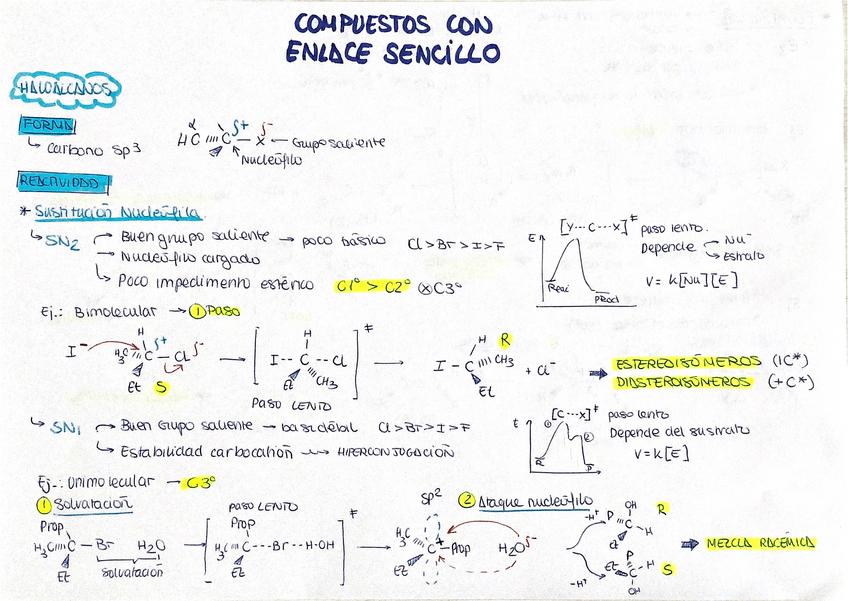 COMPUESTOS CON
ENLACE SENCILLO
HALOALCANOS
FORMA
↳ carbono sp3
HC α C δ+ — X δ- ← Grupo saliente
Nucleófilo
REACTIVIDAD
* Sustitución Nucleófila
↳ SN2 → Buen grupo saliente → poco básico Cl > Br > I > F
→ Nucleófilo cargado
↳ Poco impedimento estérico C1º > C2º ⊗ C3º
[Y---C---X]‡ paso lento.
E
Depende → Nu⁻
↘ Estrato
V = k[Nu][E]
Reac
Prod
Ej.: Bimolecular → ① Paso
I⁻ H H3C C δ+ — Cl δ- Et S → [I -- C -- Cl H Et CH3]‡ → I — C H CH3 Et R + Cl⁻
PASO LENTO
ESTEREOISÓMEROS (1C*)
DIASTEROISÓMEROS (+C*)
↳ SN1 → Buen Grupo saliente → base débil Cl > Br > I > F
↳ Estabilidad carbocatión → HIPERCONJUGACIÓN
[C---X]‡ paso lento
t
① ②
R P
Depende del sustrato
V = k[E]
Ej.: Unimolecular → C3º
① Solvatación
PASO LENTO
SP2
② Ataque nucleófilo
Prop H3C C — Br Et H2O → [Prop H3C C --- Br --- H-OH Et]‡ → H3C C+ — Prop Et H2O δ-
Solvatación
-H⁺ OH P C H Et R
-H⁺ P Et C H OH S
MEZCLA RACÉMICA